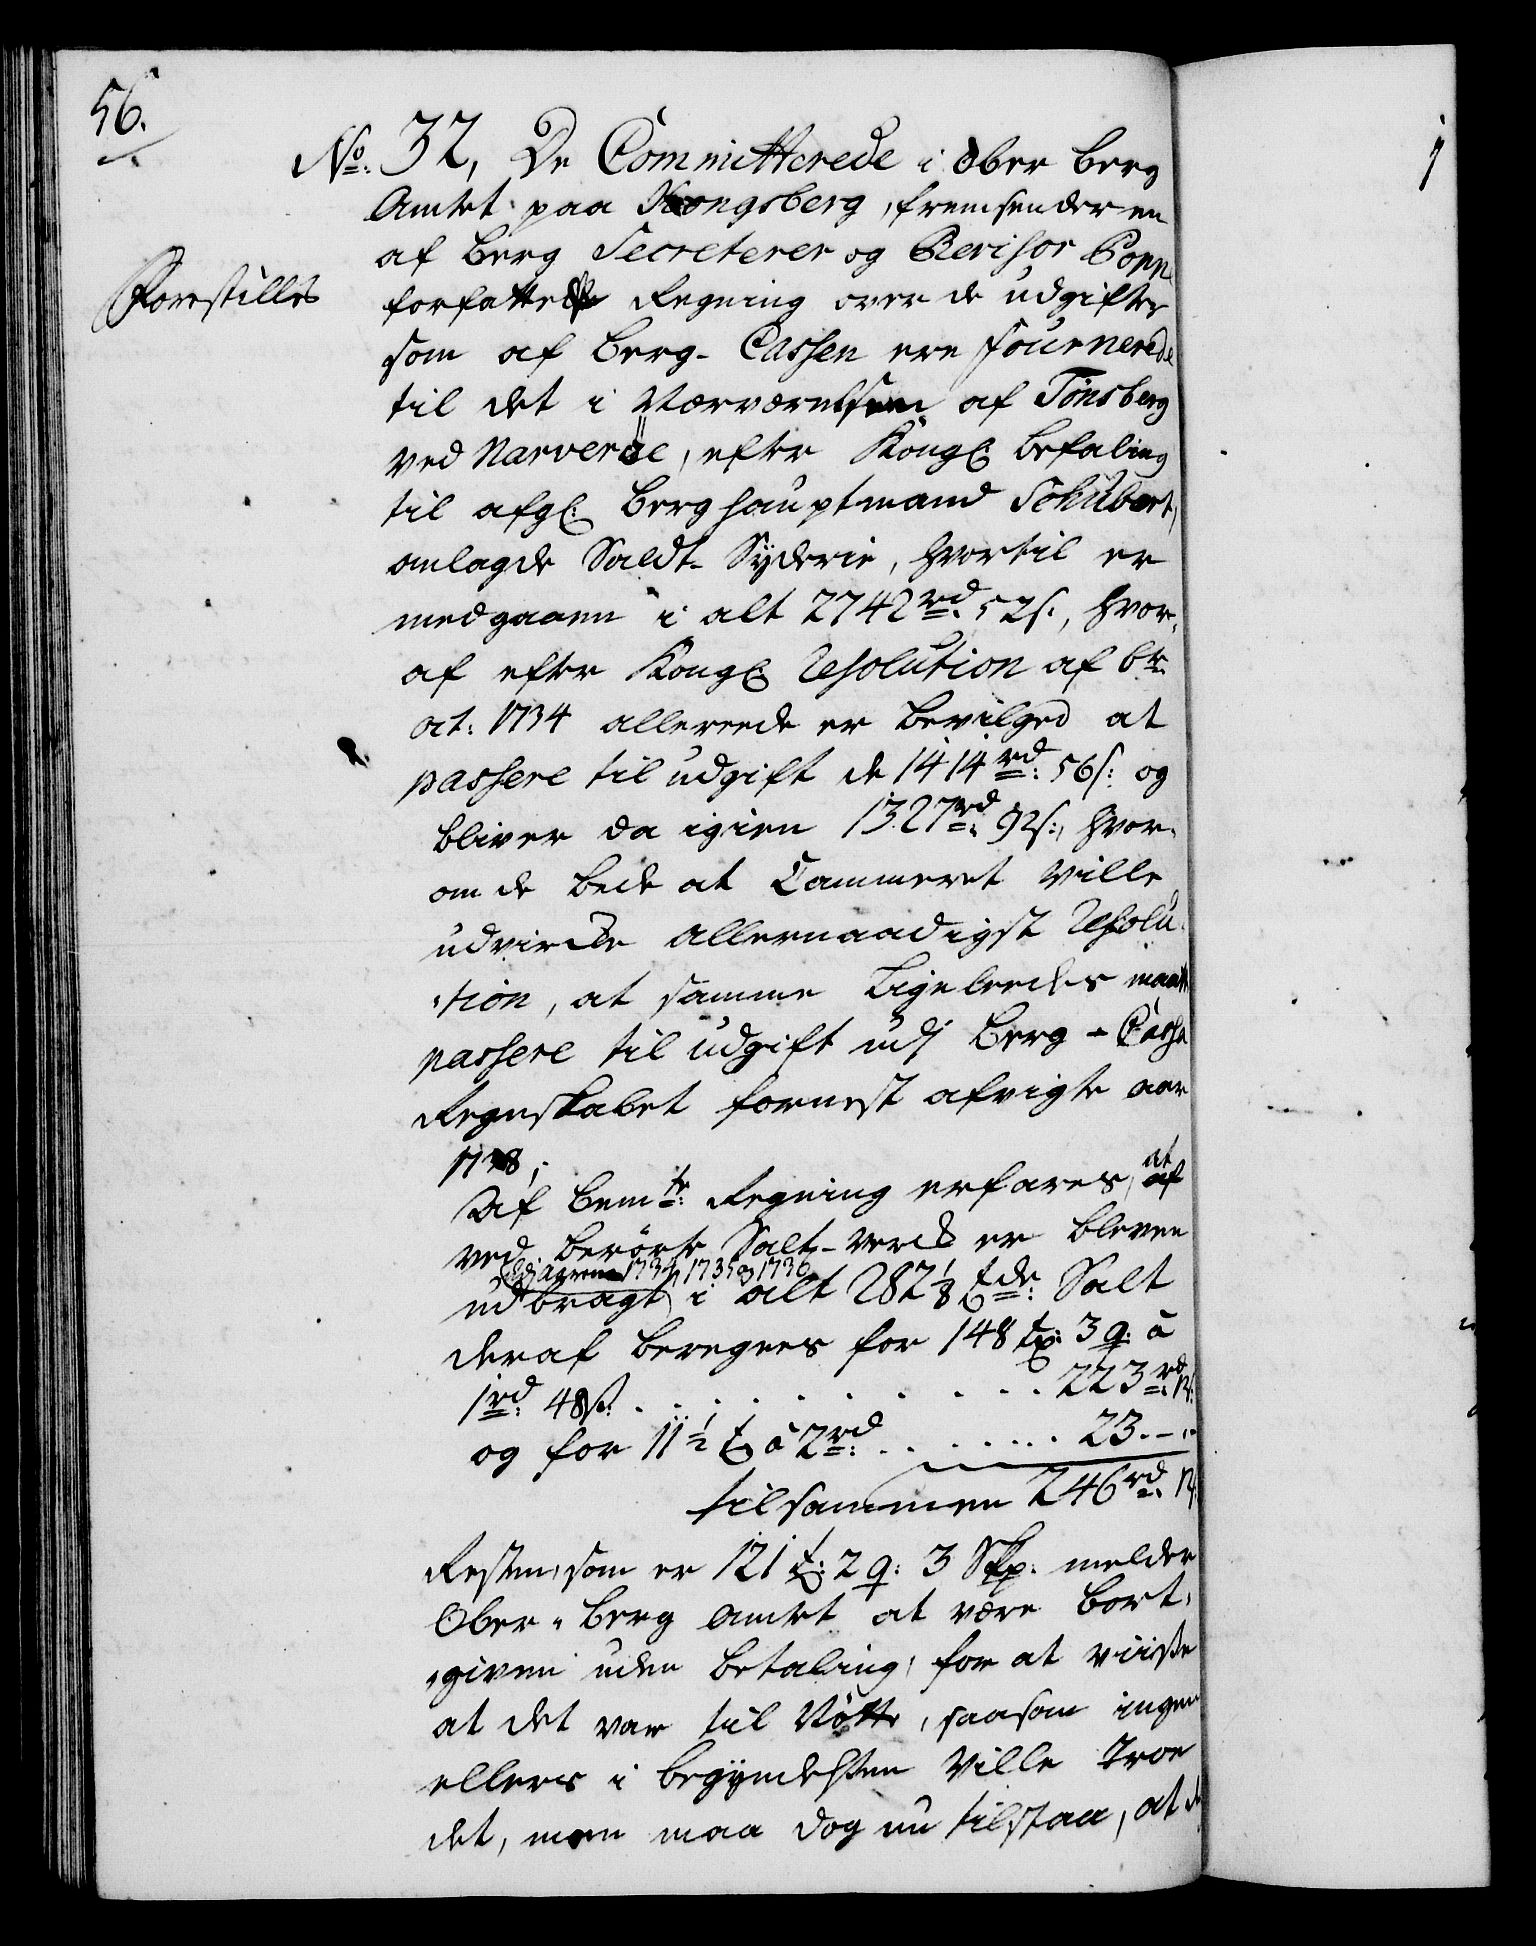 56.
No: 32, De Committerede i Ober Berg
Amtet paa Kongsberg, fremsender en
af Berg Secreterer og Revisor Popp
Forestilles
forfattede Regning over de udgifter
som af Berg- Cassen ere fournerede
til det i Nærværelsen af Tönsberg
ved Narveröe, efter Kongl: befaling
til afgl: Berghauptmand Schubert,
anlagde Saldt- Syderie, hvortil er
medgaaen i alt 2742rd: 52s:, hvor-
af efter Kongl: Resolution af 6te
oct: 1734 allereede er bevilget at
passere til udgift de 1414rd: 56s: og
bliver da igien 1327rd: 92s:, hvor-
om de bede at Cammeret ville
udvircke allernaadigst Resolu-
-tion, at samme ligeleedes maatte
passere til udgift udj Berg-Casse
Regnskabet for nest afvigte aar
1738;
Af bemte: Regning erfares, at
ved berörte Salt-Verck er bleven
udj Aarene 1734, 1735 og 1736
udbragt i alt 282 1/8 tde: Salt
deraf beregnes for 148 t: 3 q: à
1rd: 48s: . . . . . . . . . 223rd: 12s:
og for 11 1/2 t à 2rd: . . . . . . . 23. - "
tilsammen 246rd: 12s:
Resten, som er 121 t: 2 q: 3 Skp: melder
Ober-Berg Amtet at være bort-
-given uden betaling, for at viise
at det var til Nötte, saasom ingen
ellers i begyndelsen ville troe
det, men maa dog nu tilstaa, at